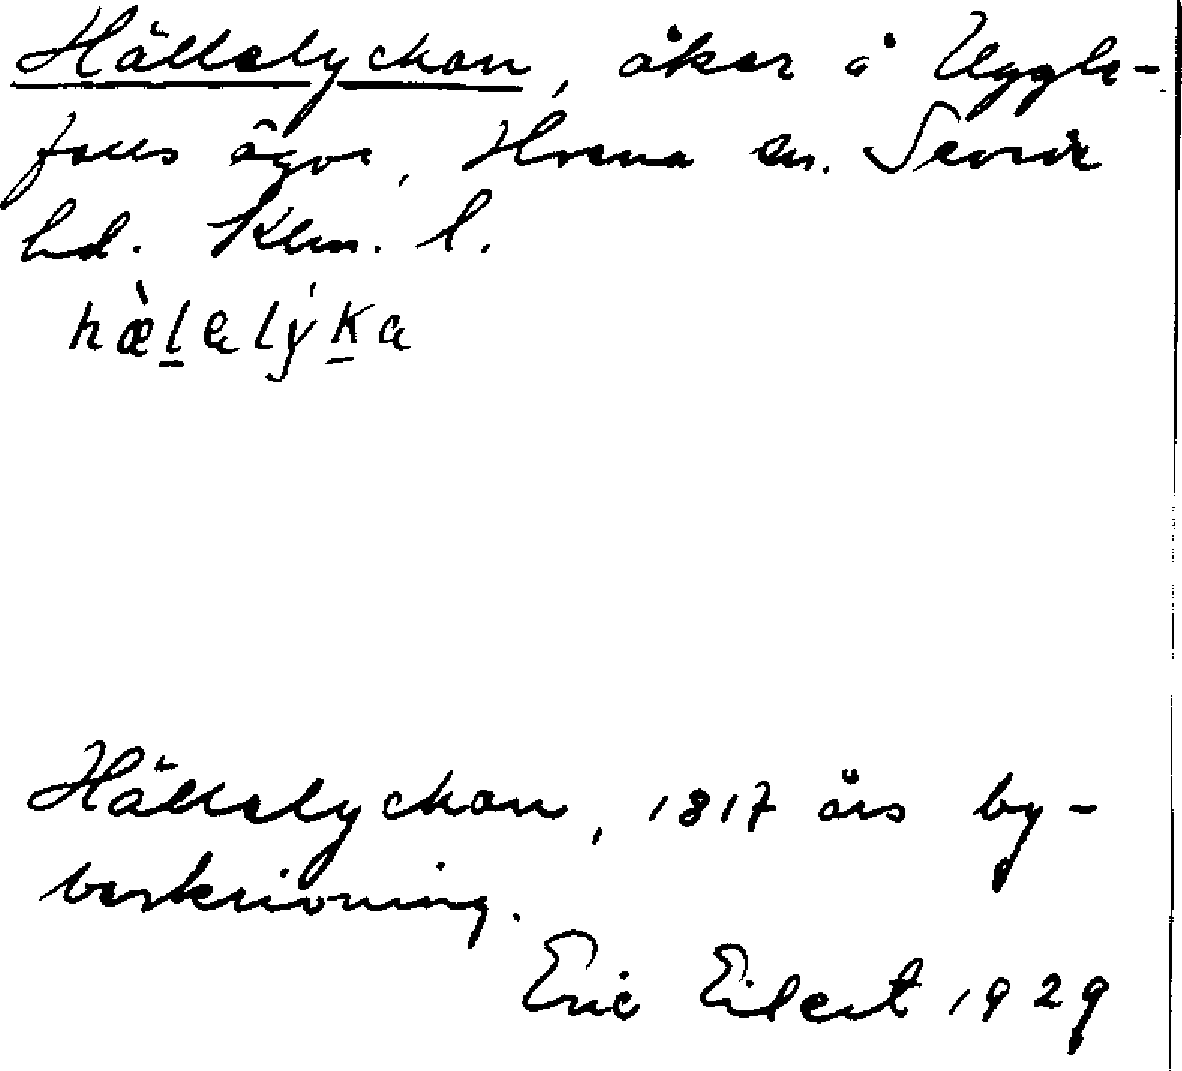 Hällelyckan, åker å Uggle-
falls ägor, Hvena sn. Sevede
hd. Klm. l.
hæ̀l̠aly̍k̠a
Hällelyckan, 1817 års by-
beskrivning.
Eric Eilert 1929